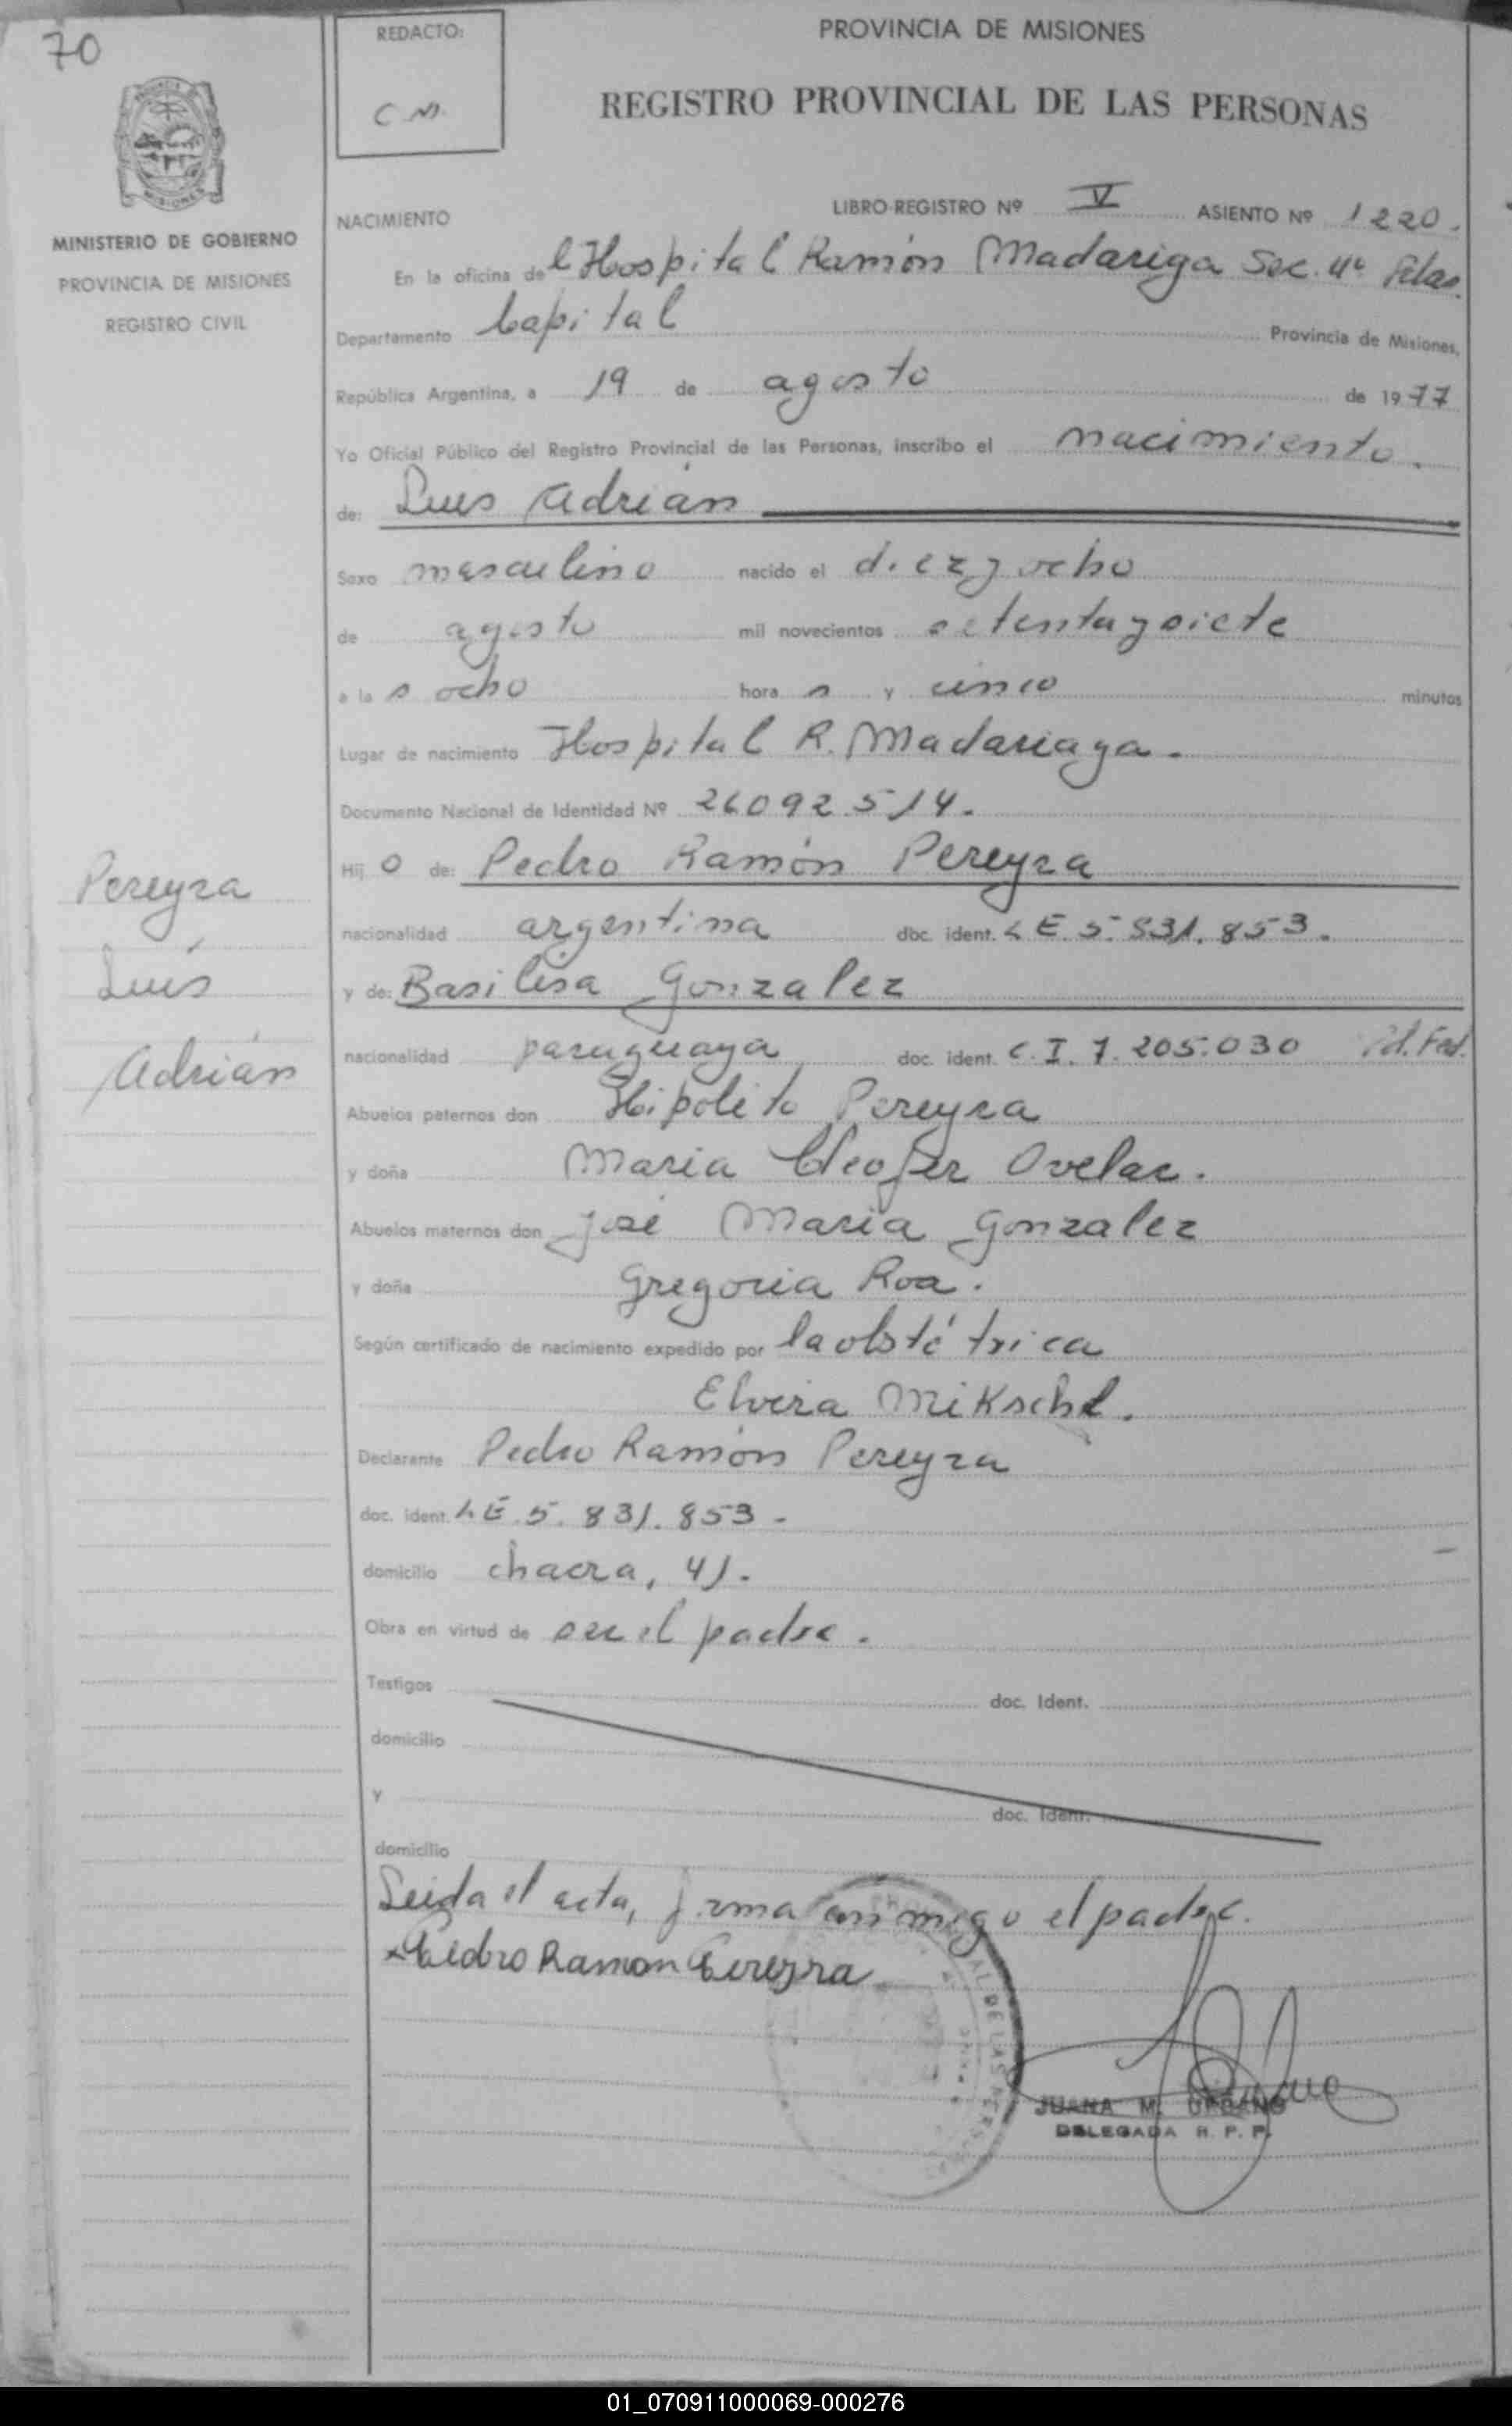 70
REDACTO:
C M.
PROVINCIA DE MISIONES
REGISTRO PROVINCIAL DE LAS PERSONAS
MINISTERIO DE GOBIERNO
PROVINCIA DE MISIONES
REGISTRO CIVIL
NACIMIENTO
LIBRO-REGISTRO Nº V ASIENTO Nº 1220.
En la oficina del Hospital Ramón Madariga Sec. 4ª
Departamento Capital Provincia de Misiones,
República Argentina, a 19 de agosto de 1977
Yo Oficial Público del Registro Provincial de las Personas, inscribo el nacimiento.
de: Luis Adrián
Sexo masculino nacido el diezyocho
de agosto mil novecientos setentaysiete
a las ocho horas y cinco minutos
Lugar de nacimiento Hospital R. Madariaga.
Documento Nacional de Identidad Nº 26092514.
Hijo de: Pedro Ramón Pereyra
nacionalidad argentina doc. ident. LE 5.831.853.
y de: Basilisa Gonzalez
nacionalidad paraguaya doc. ident. C.I. 7.205.030 Pol.Fed.
Abuelos paternos don Hipolito Pereyra
y doña Maria Cleofer Ovelar.
Abuelos maternos don José Maria Gonzalez
y doña Gregoria Roa.
Según certificado de nacimiento expedido por la obstétrica
Elvira Mikschl.
Declarante Pedro Ramón Pereyra
doc. ident. LE.5.831.853-
domicilio chacra, 41.
Obra en virtud de ser el padre.
Testigos doc. Ident.
domicilio
y doc. Ident.
domicilio
Leida el acta, firma conmigo el padre.
Pedro Ramon Pereyra
Pereyra
Luis
Adrián
JUANA M. URBANO
DELEGADA R. P. P.
01_070911000069-000276